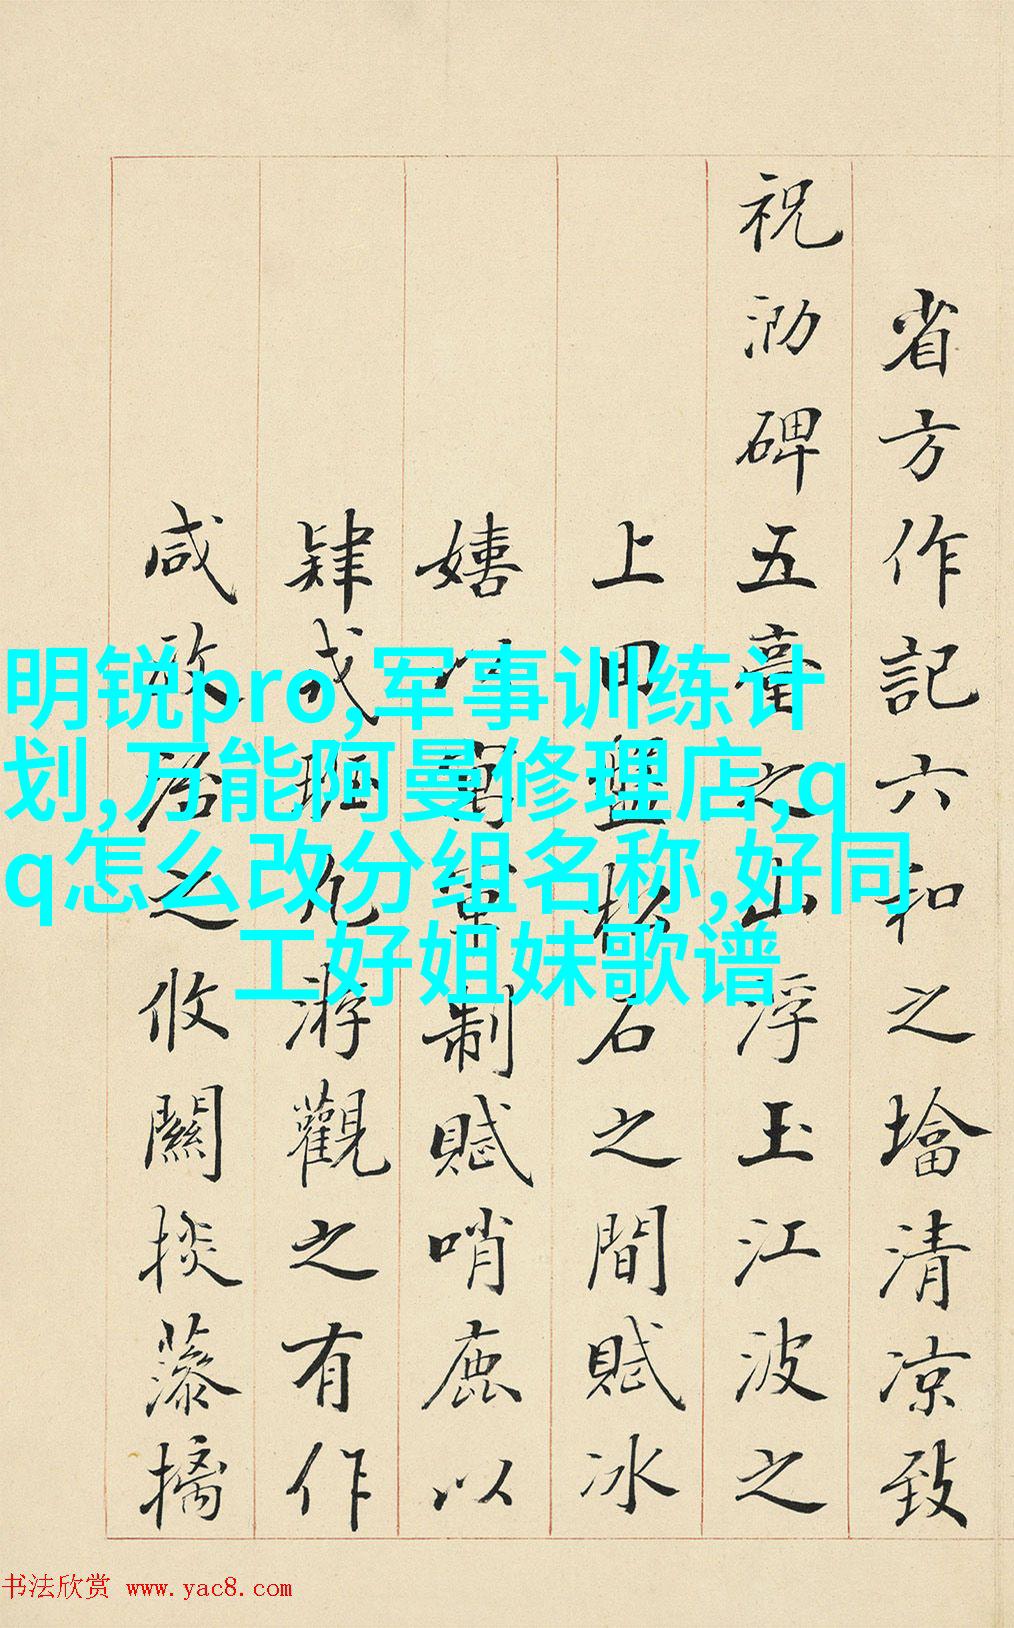 省方作記六和之墖清凉致
祝泐碑五臺之山浮玉江波之
上田盤松石之間賦冰
嬉 制賦哨鹿以
肆 游觀之有作
咸 之攸關掞藻摛
明锐pro,军事训练计
划,万能阿曼修理店,q
q怎么改分组名称,好同
工好姐妹歌谱
书法欣赏 www.yac8.com